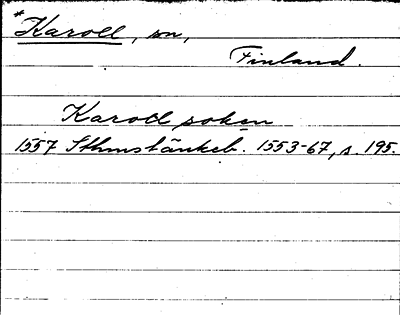 * Karoll, sn,
Finland.
Karoll soken
1557 Sthmstänkeb. 1553-67, s. 195.